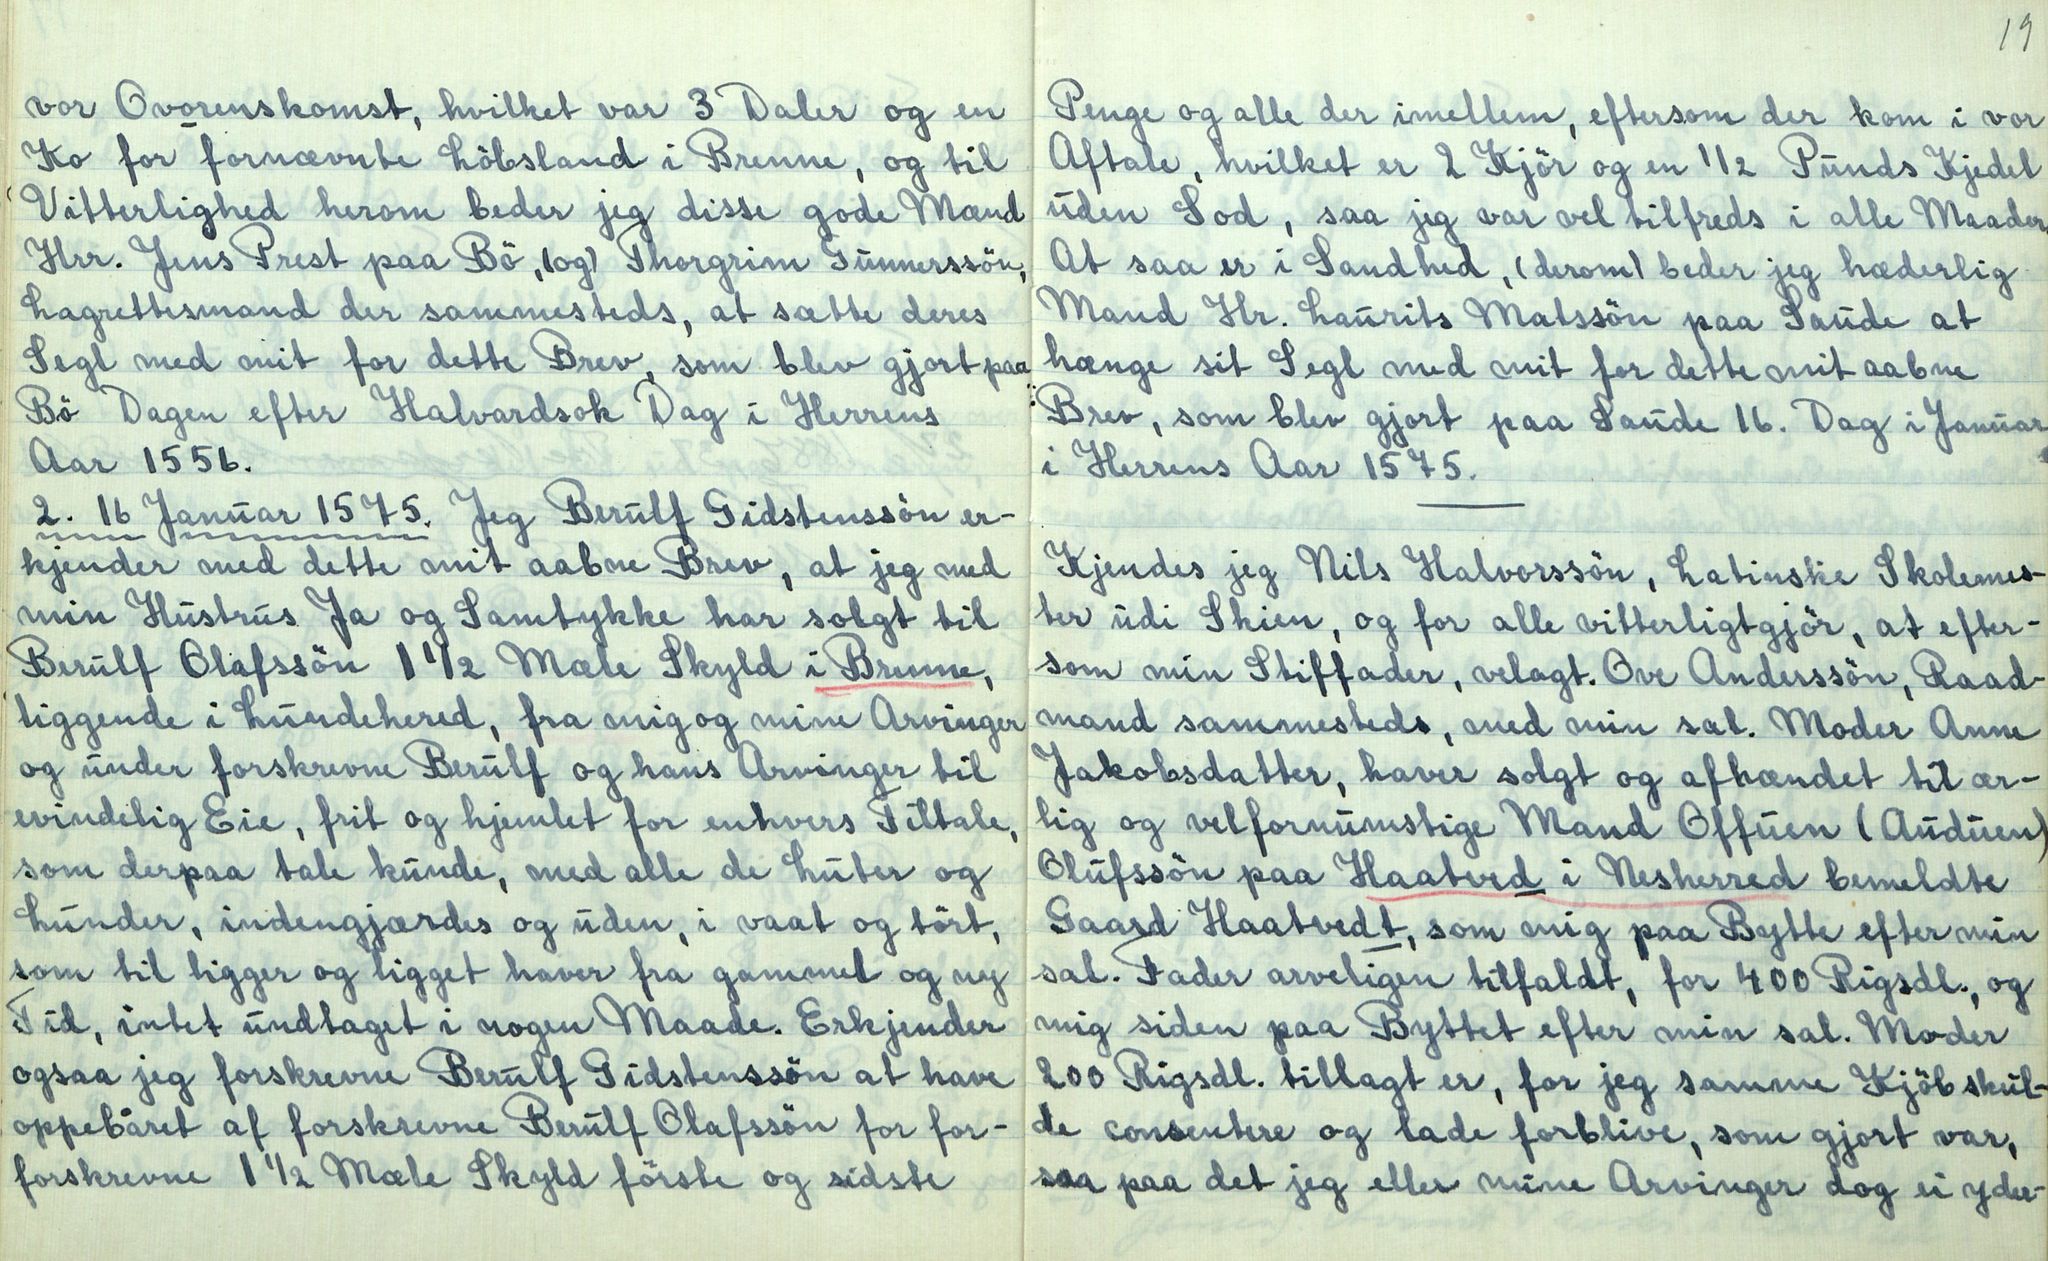 vor Ovorenskomst, hvilket var 3 Daler og en
Ko for fornævnte Löbsland i Brenne, og til
Vitterlighed herom beder jeg disse gode Mænd
Hrr. Jens Prest paa Bö, (og) Thorgrim Gunnerssön,
Lagrettesmand der sammesteds, at sætte deres
Segl med mit for dette Brev, som blev gjort paa
Bö Dagen efter Halvardsok Dag i Herrens
Aar 1556.
2. 16 Januar 1575. Jeg Berulf Gidstenssön er-
kjender med dette mit aabne Brev, at jeg med
min Hustrus Ja og Samtykke har solgt til
Berulf Olafssön 1 1/2 Mæle Skyld i Brenne,
liggende i Lundehered, fra mig og mine Arvinger
og under forskrevne Berulf og hans Arvinger til
evindelig Eie, frit og hjemlet for enhvers Tiltale,
som derpaa tale kunde, med alle de Luter og
Lunder, indengjærdes og uden, i vaat og tört,
som til ligger og ligget haver fra gammel og ny
Tid, intet undtaget i nogen Maade. Erkjender
ogsaa jeg forskrevne Berulf Gidstenssön at have
oppebåret af forskrevne Berulf Olafssön for for-
forskrevne 1 1/2 Mæle Skyld förste og sidste
19
Penge og alle der imellem, eftersom der kom i vor
Aftale, hvilket er 2 Kjör og en 1/2 Punds Kjedel
uden Lod, saa jeg var vel tilfreds i alle Maader.
At saa er i Sandhed, (derom) beder jeg hæderlig
Mand Hr. Laurits Matssön paa Saude at
hænge sit Segl med mit for dette mit aabne
Brev, som blev gjort paa Saude 16. Dag i Januar
i Herrens Aar 1575.
Kjendes jeg Nils Halvorssön, Latinske Skolemes-
ter udi Skien, og for alle vitterligtgjör, at efter-
som min Stiffader, velagt. Ove Anderssön, Raad-
mand sammesteds, med min sal. Moder Anne
Jakobsdatter, haver solgt og afhændet til ær-
lig og velfornumstige Mand Offuen (Auduen)
Olufssön paa Haatved i Nesherred bemeldte
Gaard Haatvedt, som mig paa Bytte efter min
sal. Fader arveligen tilfaldt, for 400 Rigsdl., og
mig siden paa Byttet efter min sal. Moder
200 Rigsdl. tillagt er, for jeg samme Kjöb skul-
de consentere og lade forblive, som gjort var,
saa paa det jeg eller mine Arvinger dog ei yder-